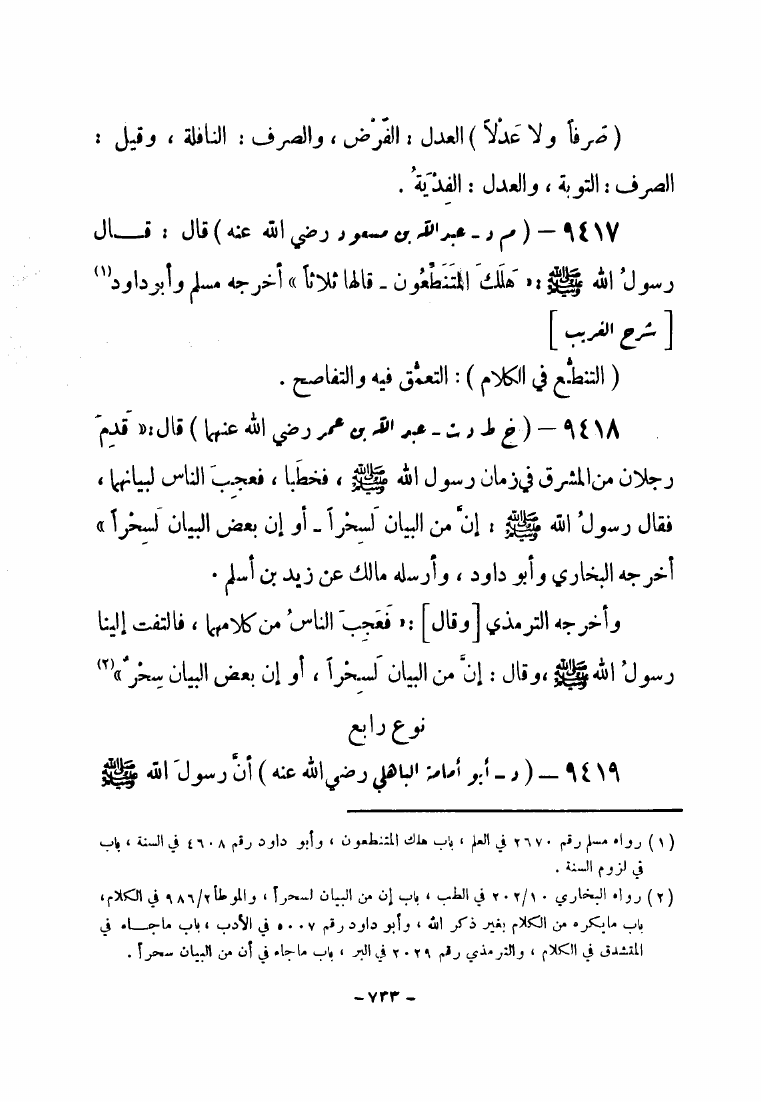 ( صَرفاً ولا عَدْلاً ) العدل : الفَرْض ، والصرف : النافلة ، وقيل :
الصرف : التوبة ، والعدل : الفِدْيَةُ .
٩٤١٧ – ( م د - عبد الله بن مسعود رضي الله عنه ) قال : قـــال
رسولُ الله ﷺ : « هَلَكَ المُتَنَطِّعُون - قالها ثلاثاً » أخرجه مسلم وأبو داود(١)
[ شرح الغريب ]
( التنطُّع في الكلام ) : التعمُّق فيه والتفاصح .
٩٤١٨ – ( خ ط د ت - عبد الله بن عمر رضي الله عنهما ) قال : « قَدِمَ
رجلان من المشرق في زمان رسول الله ﷺ ، فخطَبا ، فعجِبَ الناس لبيانهما ،
فقال رسولُ الله ﷺ : إنَّ من البيان لَسِحْراً - أو إن بعض البيان لَسِحْراً »
أخرجه البخاري وأبو داود ، وأرسله مالك عن زيد بن أسلم .
وأخرجه الترمذي [ وقال ] : « فَعَجِبَ الناسُ من كلامهما ، فالتفت إلينا
رسولُ الله ﷺ ، وقال : إنَّ من البيان لَسِحْراً ، أو إن بعض البيان سِحْرٌ »(٢)
نوع رابع
٩٤١٩ – ( د - أبو أمامة الباهلي رضي الله عنه ) أنَّ رسولَ الله ﷺ
(١) رواه مسلم رقم ٢٦٧٠ في العلم ، باب هلك المتنطعون ، وأبو داود رقم ٤٦٠٨ في السنة ، باب
في لزوم السنة .
(٢) رواه البخاري ٢٠٢/١٠ في الطب ، باب إن من البيان لسحراً ، والموطأ ٩٨٦/٢ في الكلام ،
باب مايكره من الكلام بغير ذكر الله ، وأبو داود رقم ٥٠٠٧ في الأدب ، باب ماجـــاء في
المتشدق في الكلام ، والترمذي رقم ٢٠٢٩ في البر ، باب ماجاء في أن من البيان سحراً .
– ٧٣٣ –